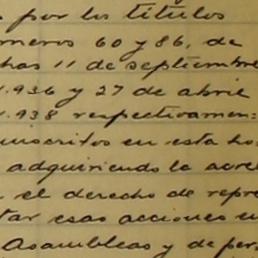 por los títulos
meros 60 y 86, de
has 11 de septiembre
1.936 y 27 de abril
1.938 respectivamen=
nscritos en esta ho
adquiriendo la acre
el derecho de repre
tar esas acciones en
Asambleas y de per